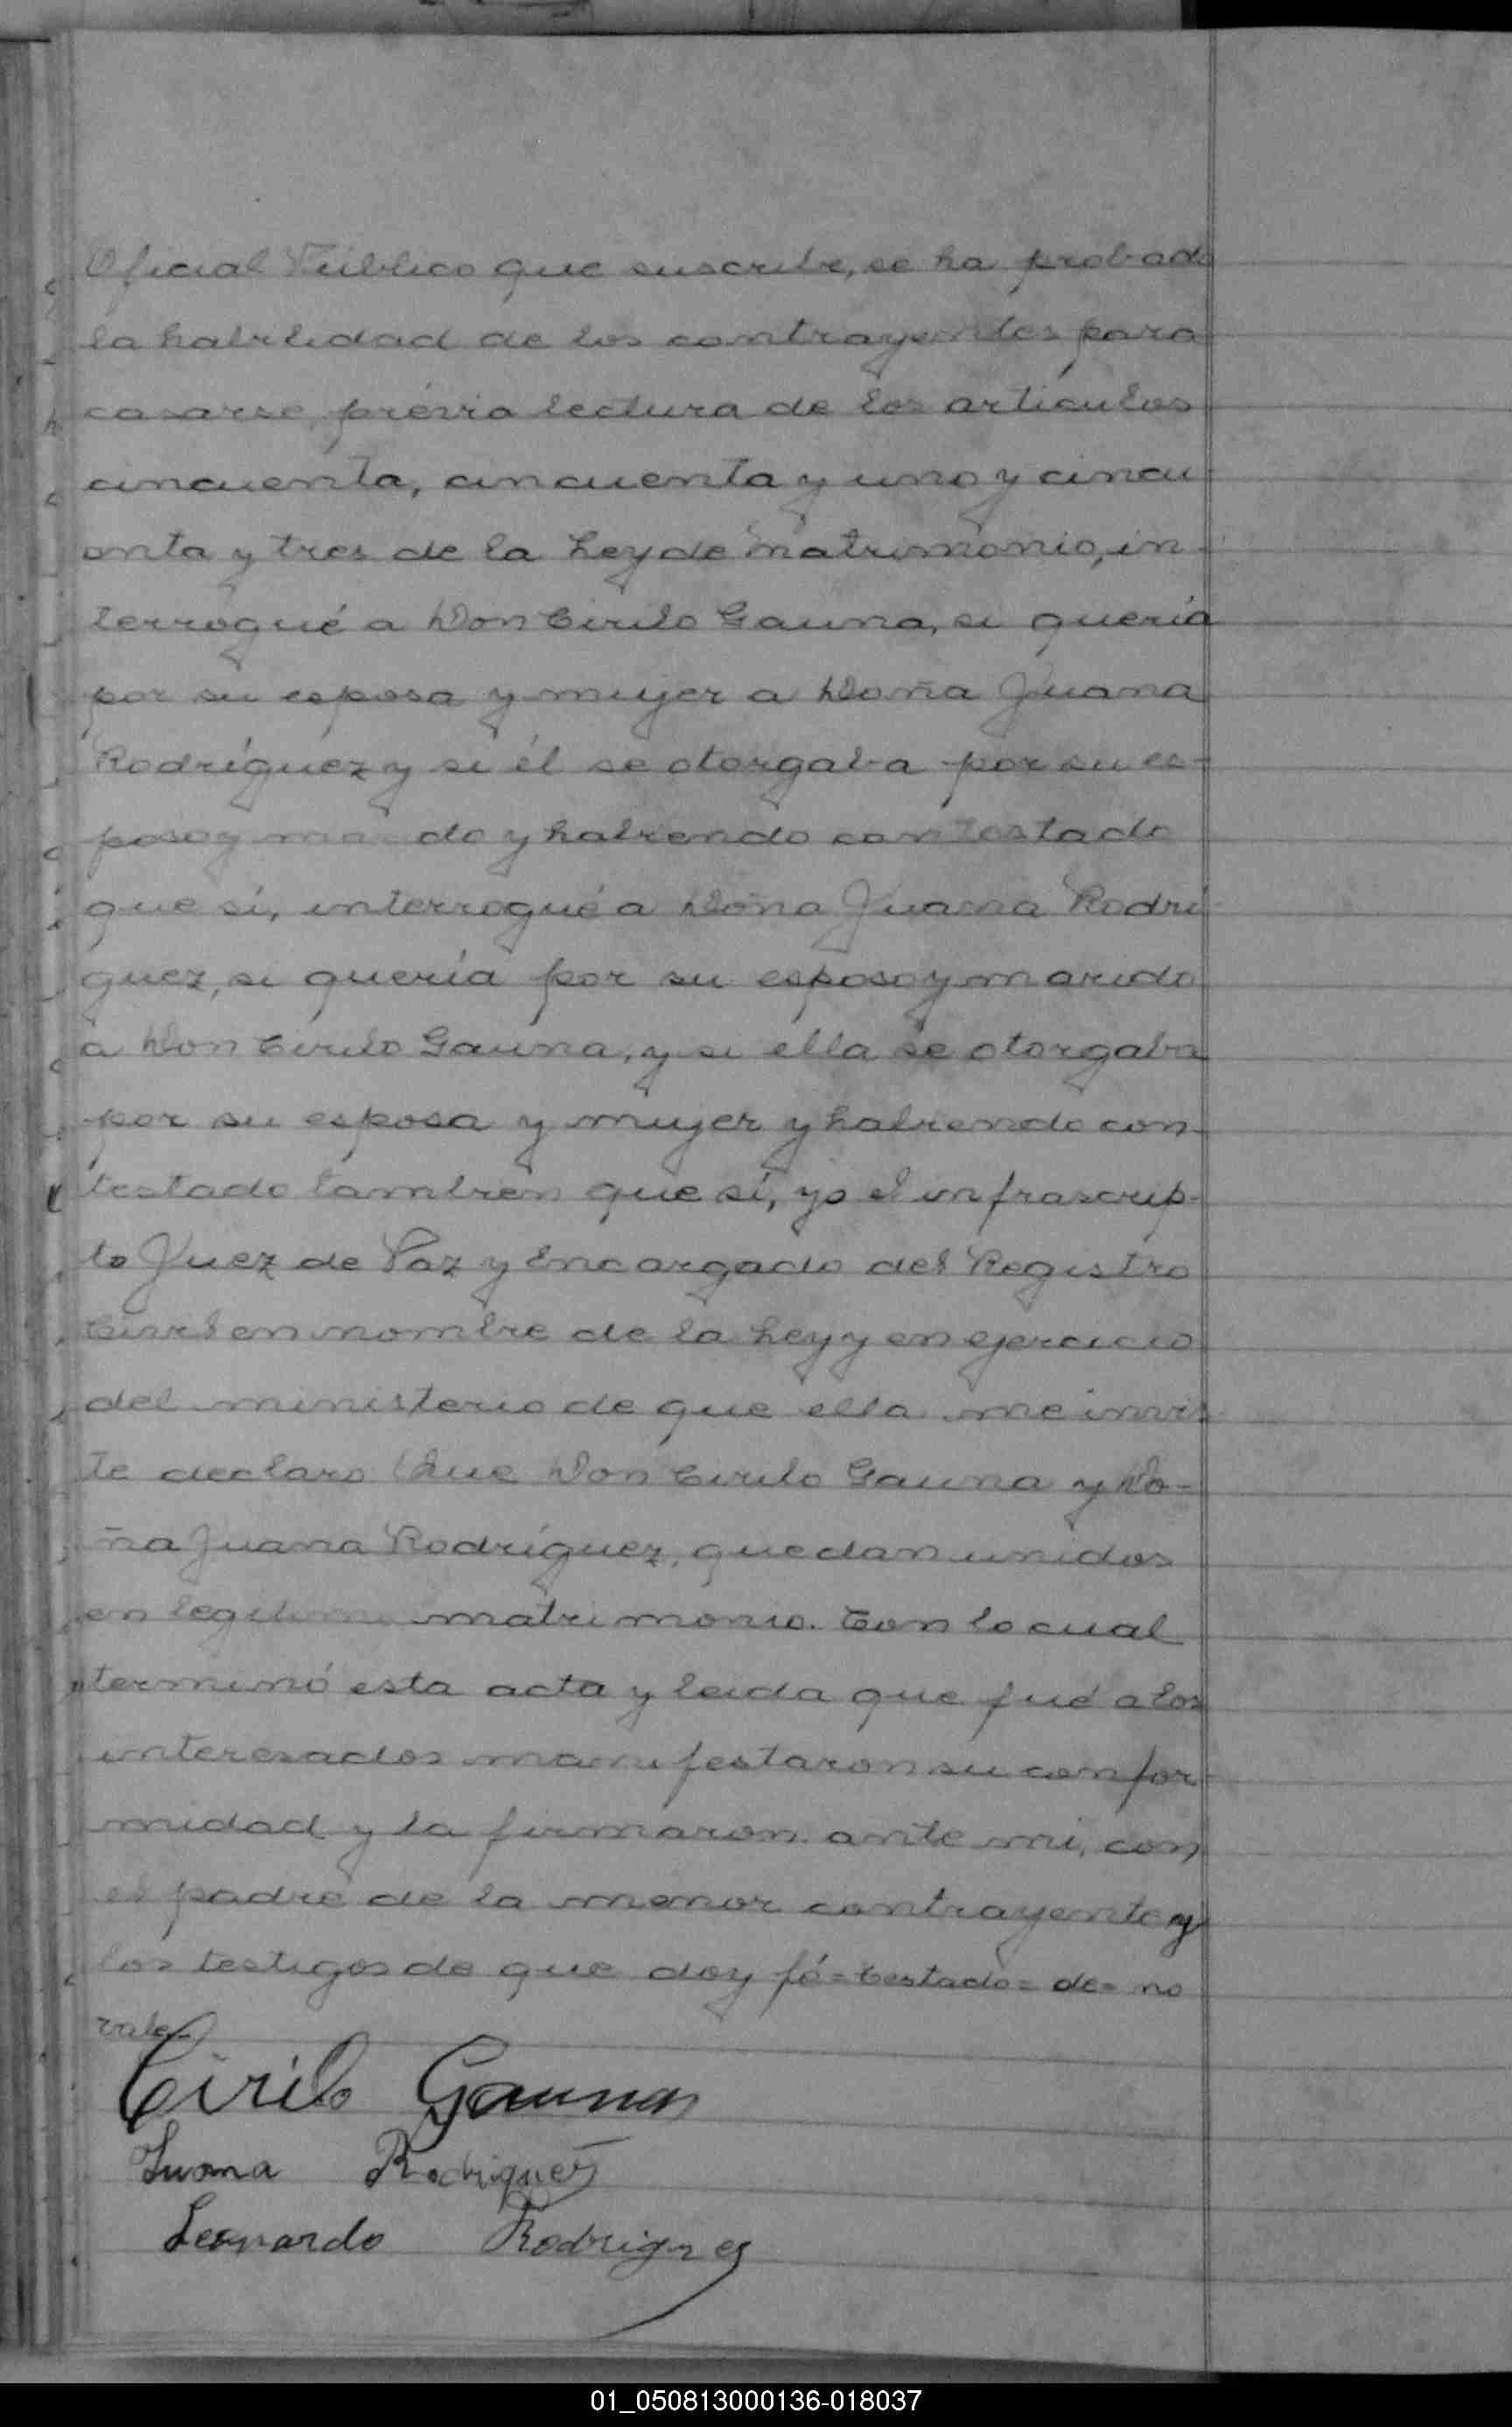 Oficial Público que suscribe, se ha probado
la habilidad de los contrayentes para
casarse, prévia lectura de los artículos
cincuenta, cincuenta y uno y cincu
enta y tres de la Ley de matrimonio, in-
terrogué a Don Cirilo Gauna, si quería
por su esposa y mujer a Doña Juana
Rodríguez y si él se otorgaba por su es-
poso y marido y habiendo contestado
que sí, interrogué a Doña Juana Rodrí
guez, si quería por su esposo y marido
a Don Cirilo Gauna, y si ella se otorgaba
por su esposa y mujer y habiendo con-
testado también que sí, yo el infrascrip-
to Juez de Paz y Encargado del Registro
Civil en nombre de la Ley y en ejercicio
del ministerio de que ella me invis
te declaro Que Don Cirilo Gauna y Do-
ña Juana Rodríguez, quedan unidos
en legitimo matrimonio. Con lo cual
terminó esta acta y leida que fué a los
interesados manifestaron su confor
midad y la firmaron ante mi, con
el padre de la menor contrayente y
los testigos de que doy fé = testado = de = no
vale =
Cirilo Gauna
Juana Rodriguez
Leonardo Rodrigues
01_050813000136-018037